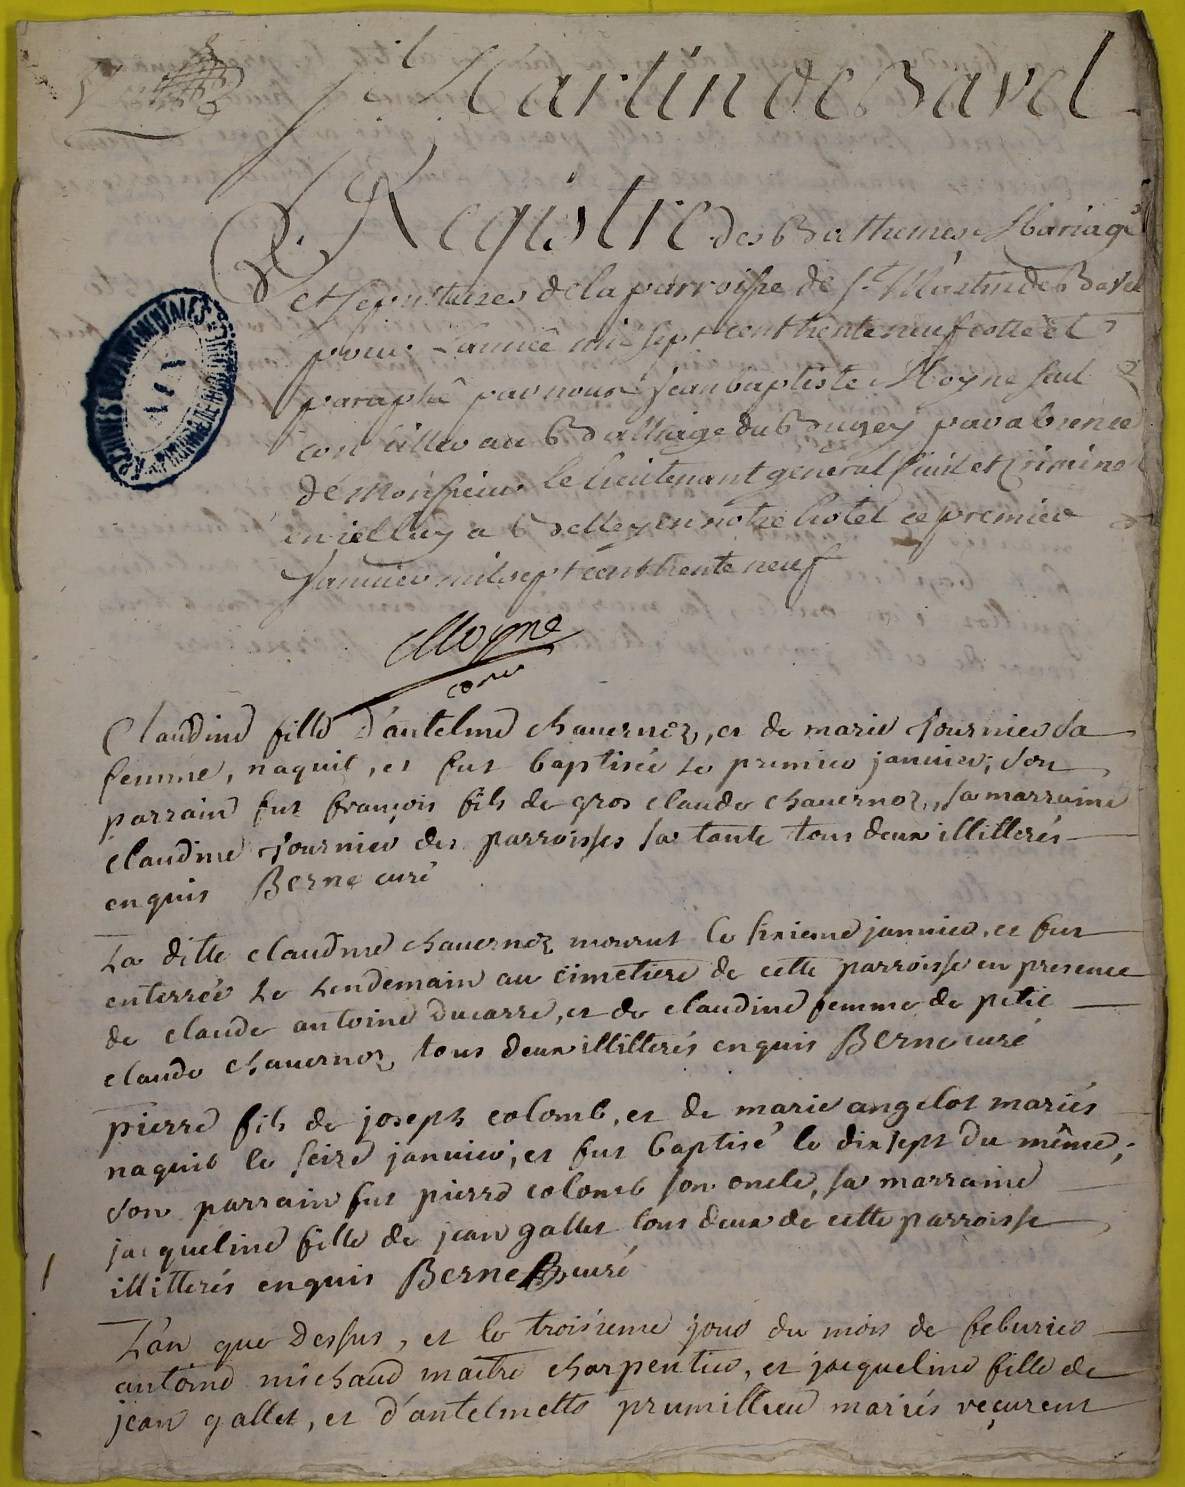 St Martin de Bavel
Registre des Bathemes Mariages
et sepultures de la parroisse de st Martin de Bavel
pour L'année mil sept cent trente neuf cotté et
paraphé par nous Jean baptiste Moyne seul
conseiller au Balliage du Bugey par absence
de Monsieur le lieutenant general Civil et Criminel
en icelluy a Belley en notre hotel ce premier
Janvier mil sept cent trente neuf
Moyne
ARCHIVES DEPARTEMENTALES
AIN
Claudine fille d'antelme chavernoz, et de marie fournier sa
femme, naquit, et fut baptisée le premier janvier; son
parrain fut françois fils de gros claude chavernoz, sa marraine
claudine fournier des parroisses sa tante tous deux illitterés
enquis Berne curé
La ditte claudine chavernoz mourut le sixieme janvier, et fut
enterrée le Lendemain au cimetiere de cette parroisse en presence
de claude antoine ducarre, et de claudine femme de petit
claude chavernoz, tous deux illitterés enquis Berne curé
pierre fils de joseph colomb, et de marie angelot mariés
naquit le seize janvier, et fut baptisé le dix sept du même;
son parrain fut pierre colomb son oncle, sa marraine
jacqueline fille de jean gallet tous deux de cette parroisse
illitterés enquis Berne curé
L'an que dessus, et le troisieme jour du mois de feburier
antoine michaud maitre charpentier, et jacqueline fille de
jean gallet, et d'antelmette prumillieu mariés reçurent